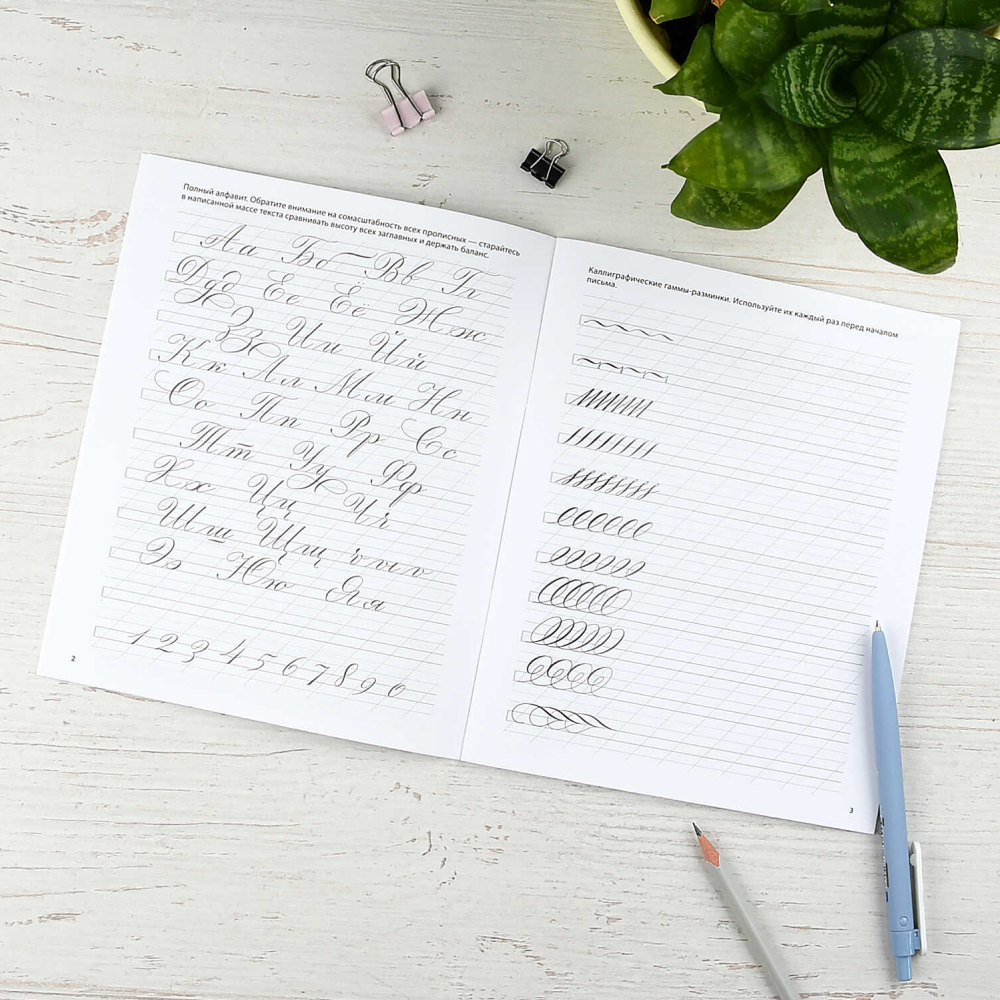 Полный алфавит. Обратите внимание на сомасштабность всех прописных — старайтесь
в написанной массе текста сравнивать высоту всех заглавных и держать баланс.
Аа Бб Вв Гг
Дд Ее Ёё Жж
Зз Ии Йй
Кк Лл Мм Нн
Оо Пп Рр Сс
Тт Уу Фф
Хх Цц Чч
Шш Щщ ъ ы ь
Ээ Юю Яя
1 2 3 4 5 6 7 8 9 0
2
Каллиграфические гаммы-разминки. Используйте их каждый раз перед началом
письма.
3